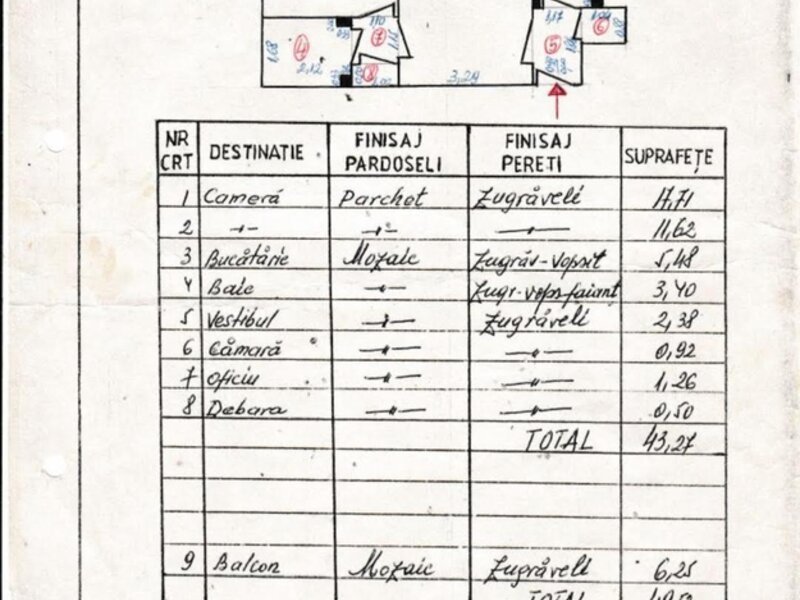 1,68
4
2,12
1,10
7
1,14
8
3,29
1,17
5
6
NR CRT DESTINATIE FINISAJ PARDOSELI FINISAJ PERETI SUPRAFEȚE
1 Cameră Parchet Zugrăveli 17,71
2 -〃- -〃- -〃- 11,62
3 Bucătărie Mozaic Zugrăv-vopsit 5,48
4 Baie -〃- Zugr-vops-faianț 3,40
5 Vestibul -〃- Zugrăveli 2,38
6 Cămară -〃- -〃- 0,92
7 Oficiu -〃- -〃- 1,26
8 Debara -〃- -〃- 0,50
TOTAL 43,27
9 Balcon Mozaic Zugrăveli 6,25
TOTAL